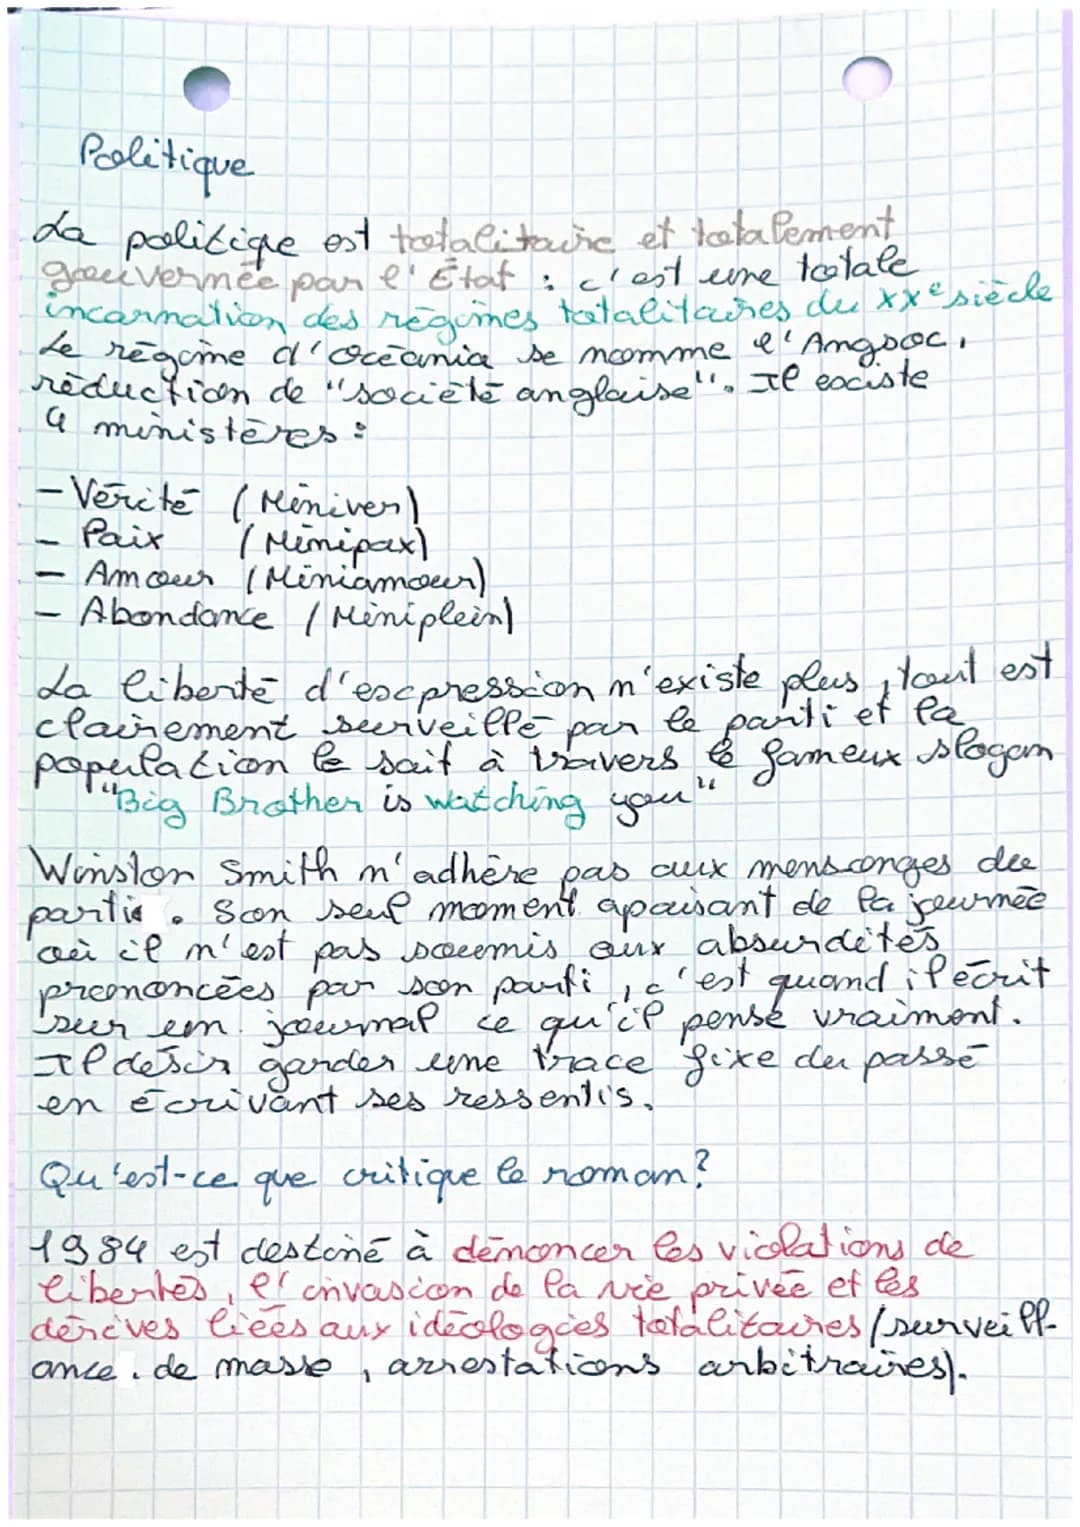 Politique
La politique est totalitaire et totalement
gouvernée par l'État : c'est une totale
incarnation des régimes totalitaires du XXe siècle
Le régime d'Océania se nomme l'Angsoc,
réduction de "société anglaise". Il existe
4 ministères :
- Vérité (Miniver)
- Paix (Minipax)
- Amour (Miniamour)
- Abondance (Miniplein)
La liberté d'expression n'existe plus, tout est
clairement surveillé par le parti et la
population le sait à travers le fameux slogan
"Big Brother is watching you"
Winston Smith n'adhère pas aux mensonges du
parti. Son seul moment apaisant de la journée
où il n'est pas soumis aux absurdités
prononcées par son parti, c'est quand il écrit
sur un journal ce qu'il pense vraiment.
Il désir garder une trace fixe du passé
en écrivant ses ressentis.
Qu'est-ce que critique le roman?
1984 est destiné à dénoncer les violations de
libertés, l'invasion de la vie privée et les
dérives liées aux idéologies totalitaires (surveill-
ance de masse, arrestations arbitraires).